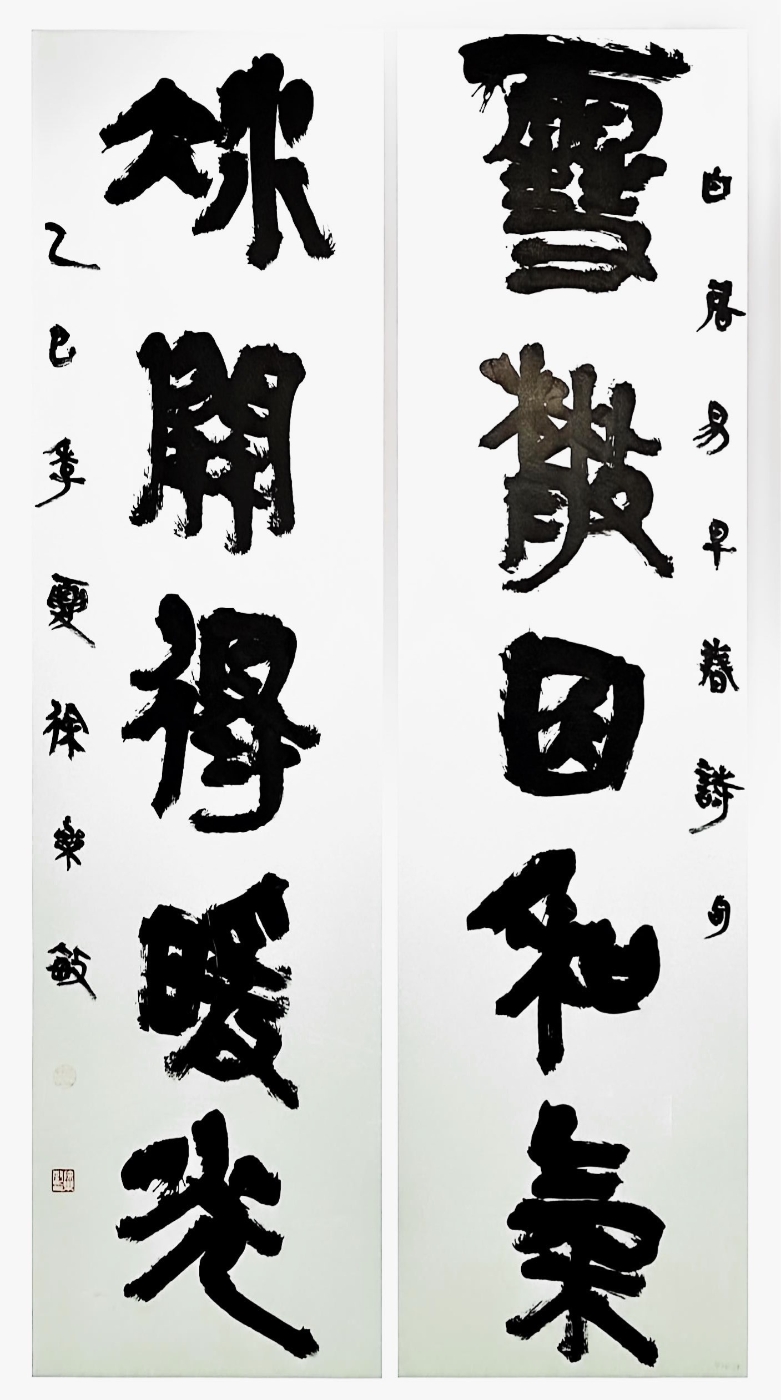 白居易早春詩句
雪散因和氣
冰開得暖光
乙巳季夏徐樂敏